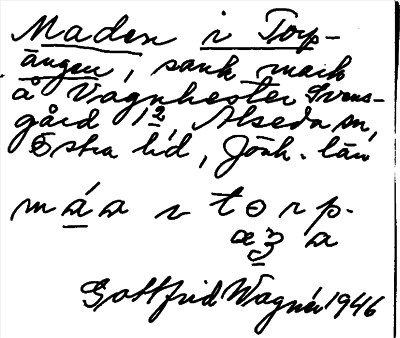 Maden i Torp-
ängen, sank mark
å Vagnhester Svens-
gård 1 2, Alseda sn,
Östra hd, Jönk. län
máa i torp-
æʒ a
Gottfrid Wagnér 1946